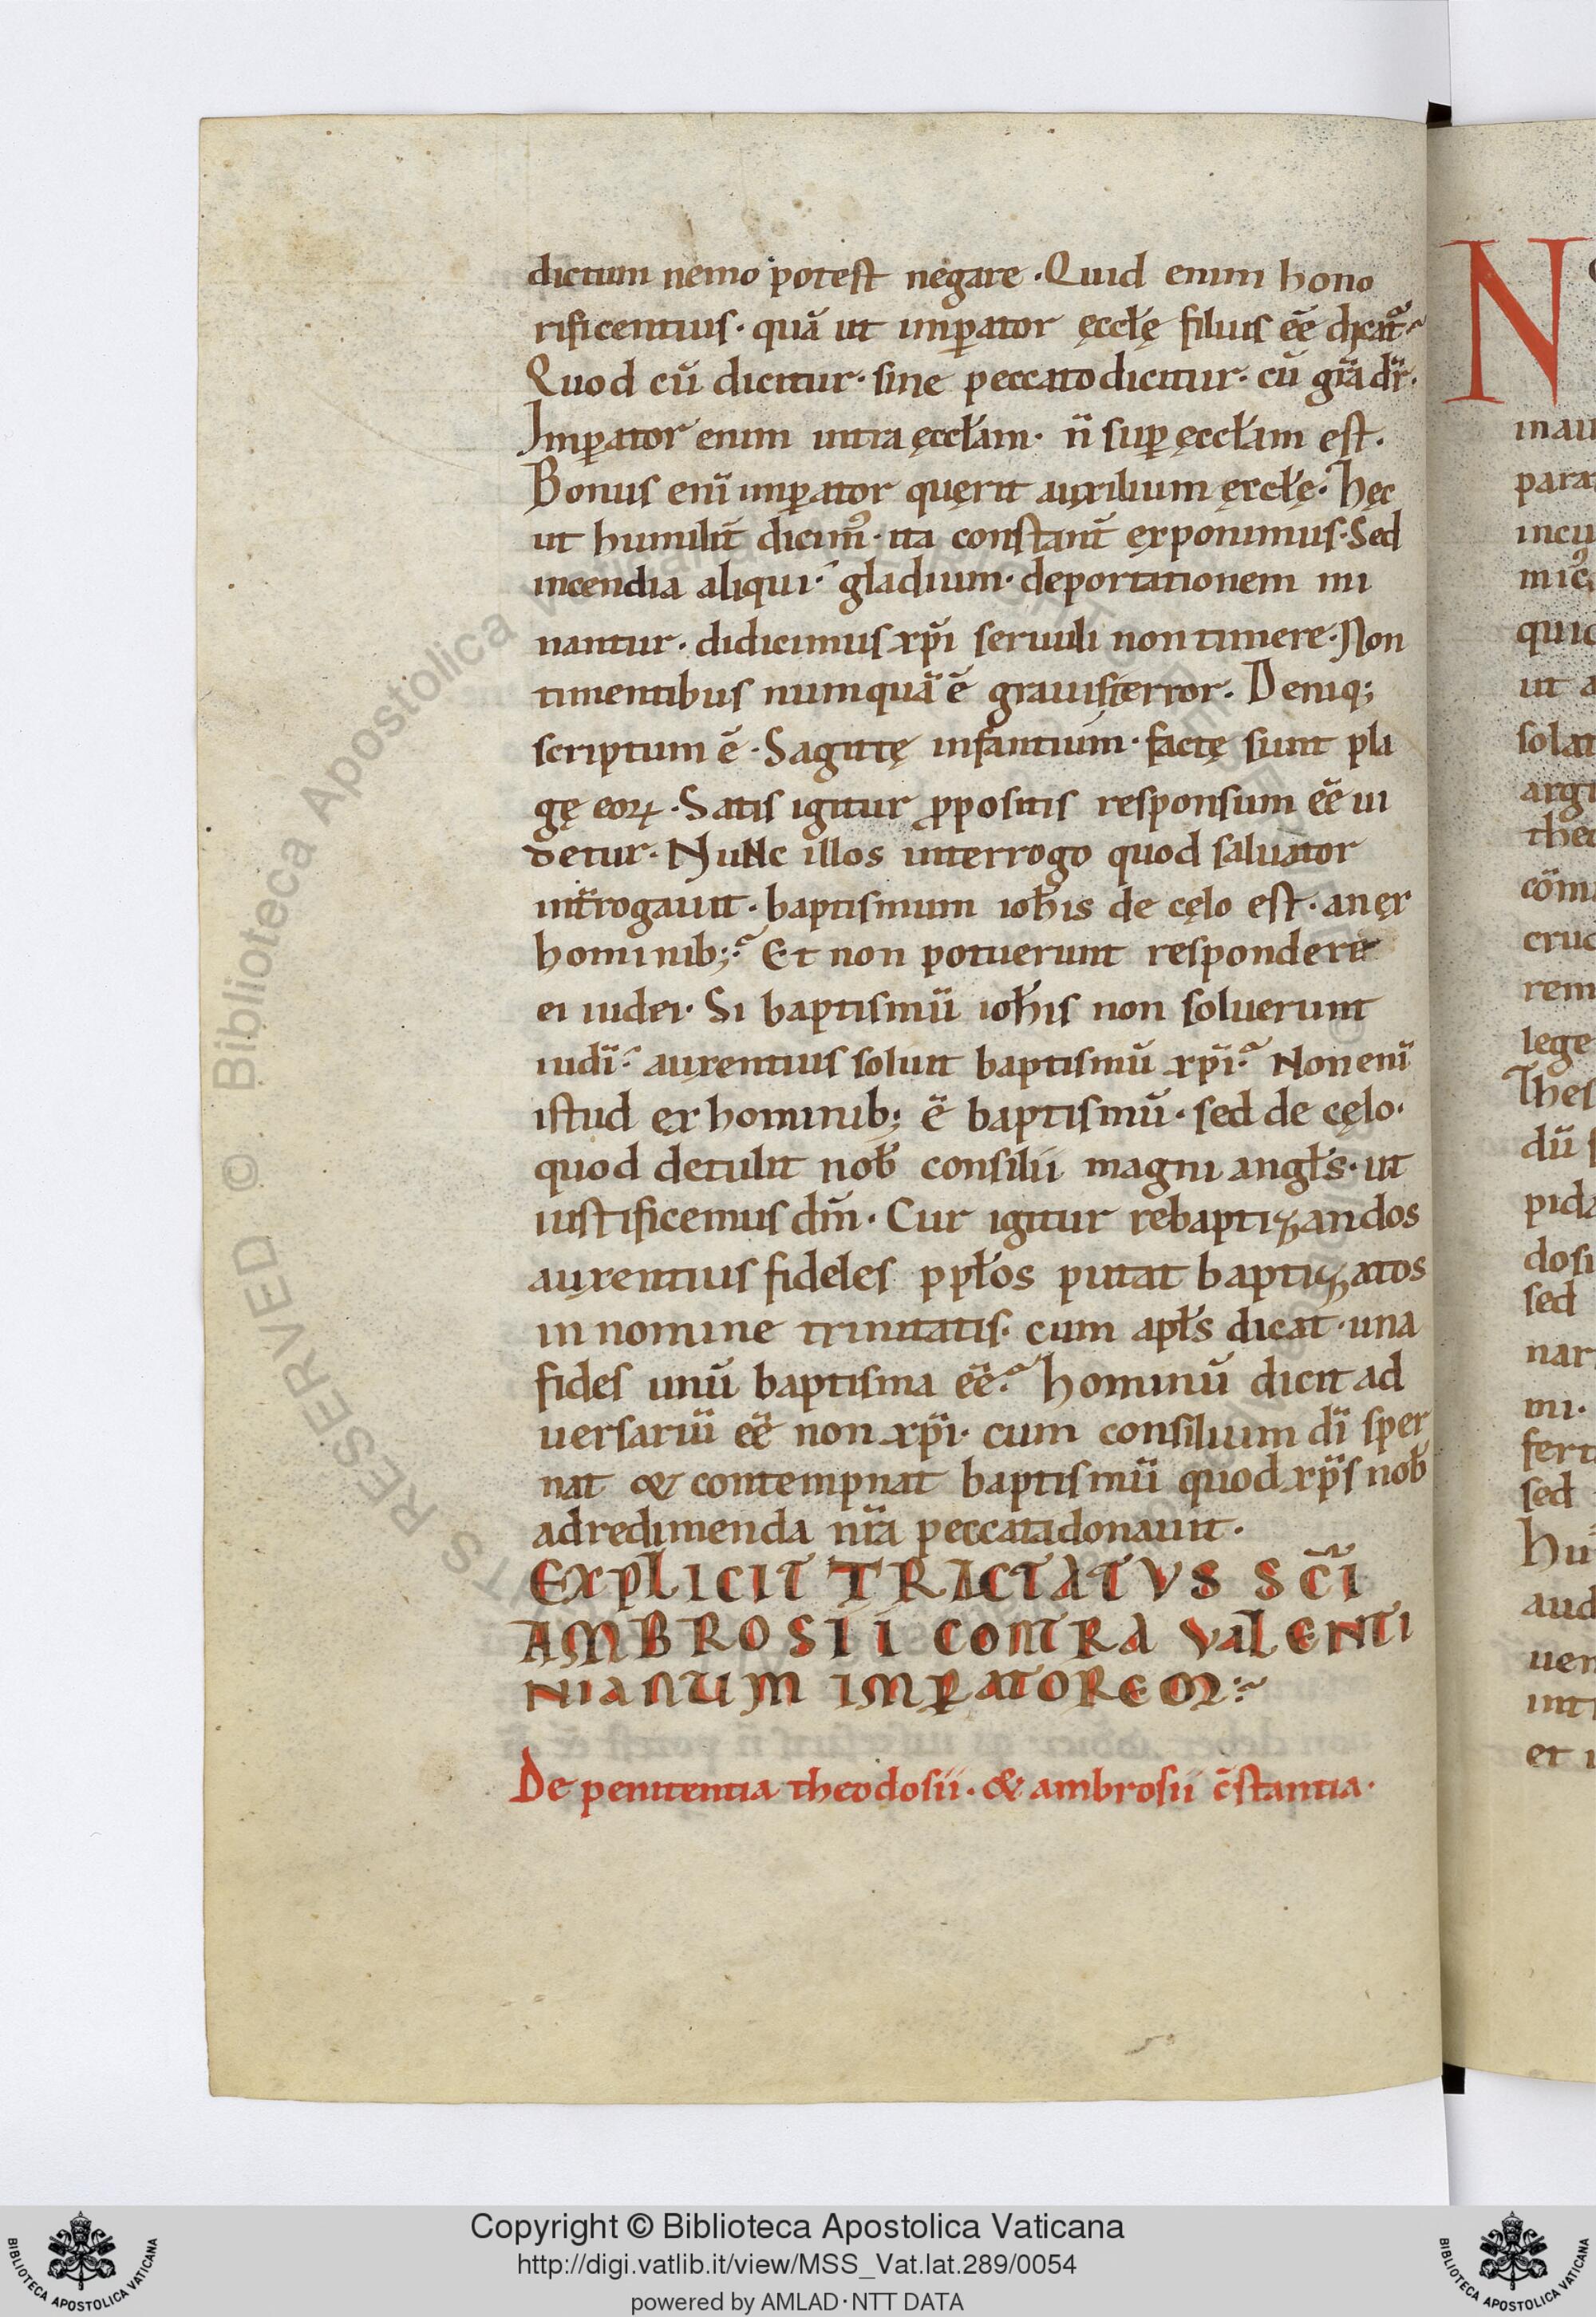 dictum nemo potest negare · Quid enim hono
rificentius · quā ut imꝑator ęccłę filius eē dicat᷑
Quod cū dicitur · sine peccato dicitur · cū gr̄a dr̄.
Imꝑator enim intra ęccłam · n̄ suꝑ ęccłam est.
Bonus eni imꝑator quęrit auxilium ęccłę · hęc
ut humilit̄ dicim᷒ · ita constant̄ exponimus · Sed
incendia aliqui · gladium · deportationem mi
nantur · didicimus xp̄i seruuli non timere · Non
timentibus numquā ē grauis terror · Deniq;
scriptum ē · Sagittę infantium · factę sunt pla
gę eoꝝ · Satis igitur ꝓpositis responsum eē ui
detur · Nunc illos interrogo quod saluator
int̄rogauit · baptismum ioh̄is de cęlo est · an ex
hominib;? Et non potuerunt respondere
ei iudei · Si baptismū ioh̄is non soluerunt
iudī · auxentius soluit baptismū xp̄i? Non enī
istud ex hominib; ē baptismū · sed de cęlo ·
quod detulit nob̄ consilii magni angłs · ut
iustificemus dm̄ · Cur igitur rebaptizandos
auxentius fideles ppłos putat baptizatos
in nomine trinitatis · cum apłs dicat · una
fides unū baptisma eē? hominū dicit ad
uersariū eē non xp̄i · cum consilium dī sper
nat & contempnat baptismū quod xp̄s nob̄
ad redimenda nr̄a peccata donauit ·
EXPLICIT TRACTATVS SC̄I
AMBROSII CONTRA VALENTI
NIANUM IMꝐATOREM
De penitentia theodosii · & ambrosii c̄stantia ·
N
inau
para
incu
quic
ut a
solat
argu
theo
com̄
cruc
rem
lege
Thes
dū s
pida
dosi
sed
nar
mi.
fert
sed
Hu
aud
uen
int
et i
© Biblioteca Apostolica Vaticana
Copyright © Biblioteca Apostolica Vaticana
http://digi.vatlib.it/view/MSS_Vat.lat.289/0054
powered by AMLAD·NTT DATA
BIBLIOTECA APOSTOLICA VATICANA
BIBLIOTECA APOSTOLICA VATICANA